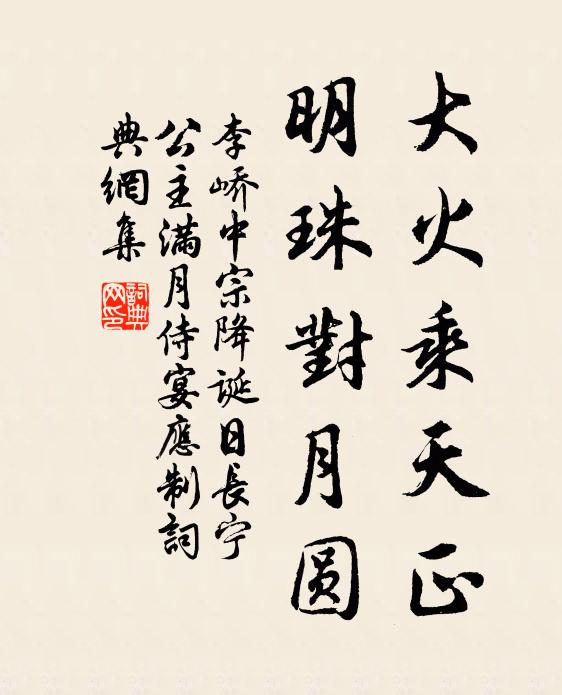 大火乘天正
明珠對月圆
李嶠中宗降誕日長宁
公主滿月侍宴應制詞
典網集
詞典网印